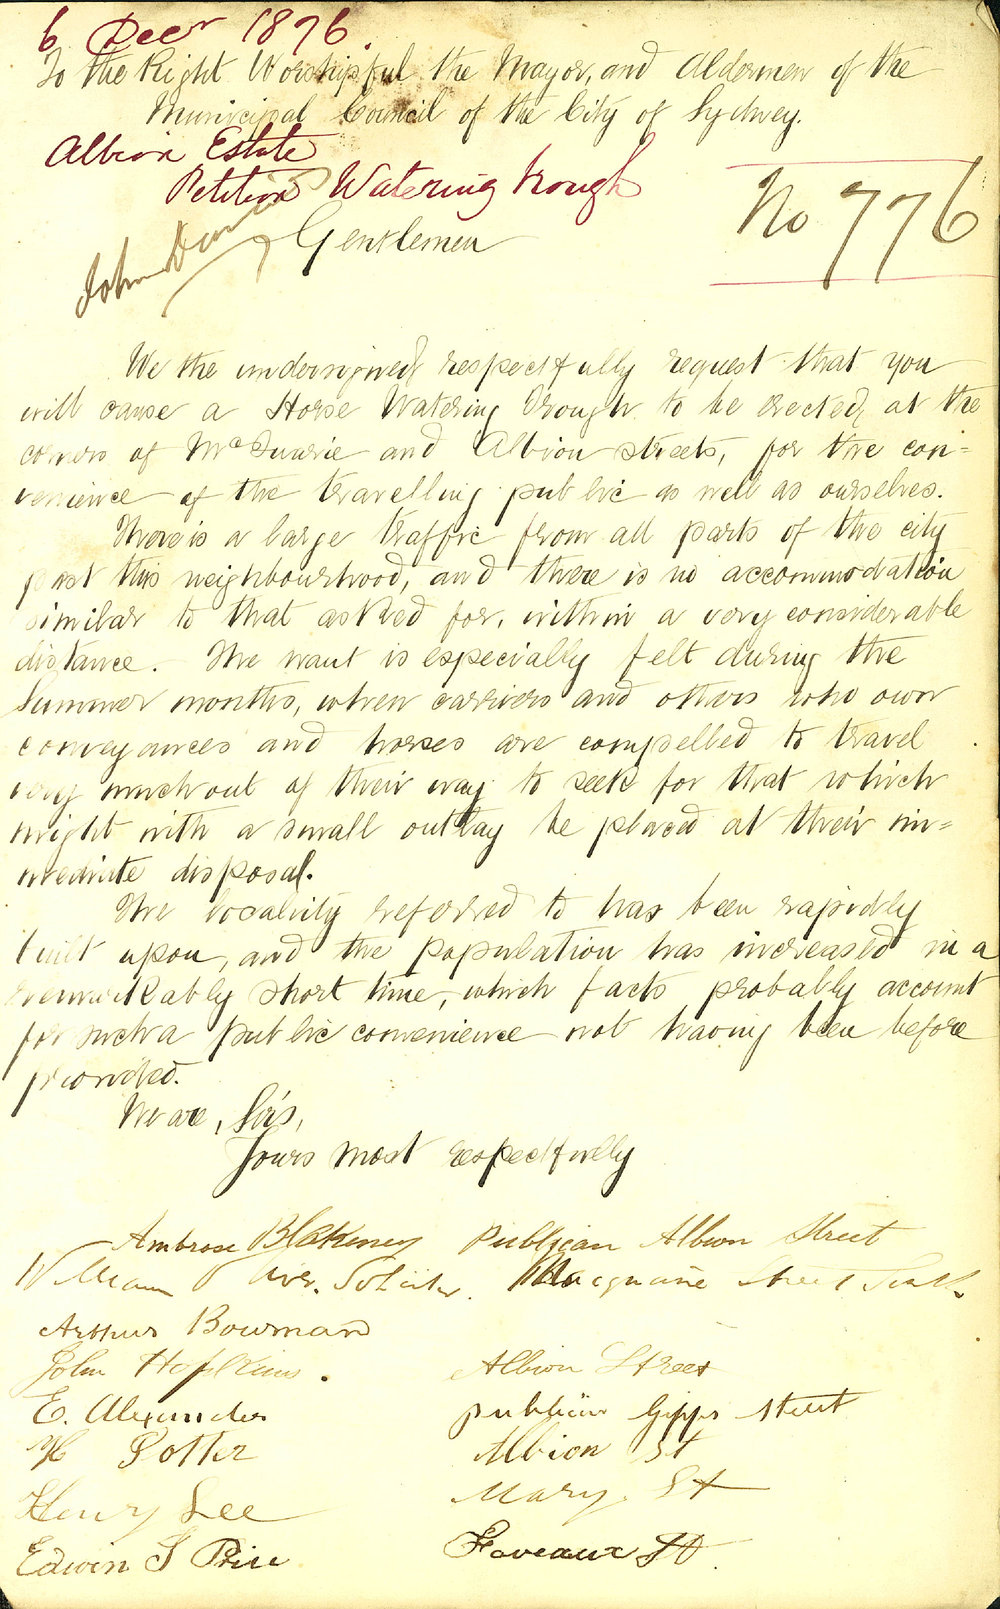 6 Decr 1876.
To the Right Worshipful the Mayor, and Aldermen of the
Municipal Council of the City of Sydney.
Albion Estate
Petition Watering trough
No 776
John
Gentlemen
We the undersigned respectfully request that you
will cause a Horse Watering Trough to be erected, at the
corners of and Albion streets, for the con=
venience of the travelling public as well as ourselves.
There is a large traffic from all parts of the city
past this neighbourhood, and there is no accommodation
similar to that asked for, within a very considerable
distance. The want is especially felt during the
Summer months, when carriers and others who own
conveyances and horses are compelled to travel
very much out of their way to seek for that which
might with a small outlay be placed at their im=
mediate disposal.
The locality referred to has been rapidly
built upon, and the population has increased in a
remarkably short time, which facts probably account
for such a public convenience not having been before
provided.
We are, Sirs,
Yours most respectfully
Ambrose Blakeney Publican Albion Street
William Solicitor. Macquarie Street South.
Arthur Bowman
John Hopkins. Albion Street
E. Alexander publican Gipps Street
H Potter Albion St
Henry Lee Mary St
Edwin Price Foveaux St.